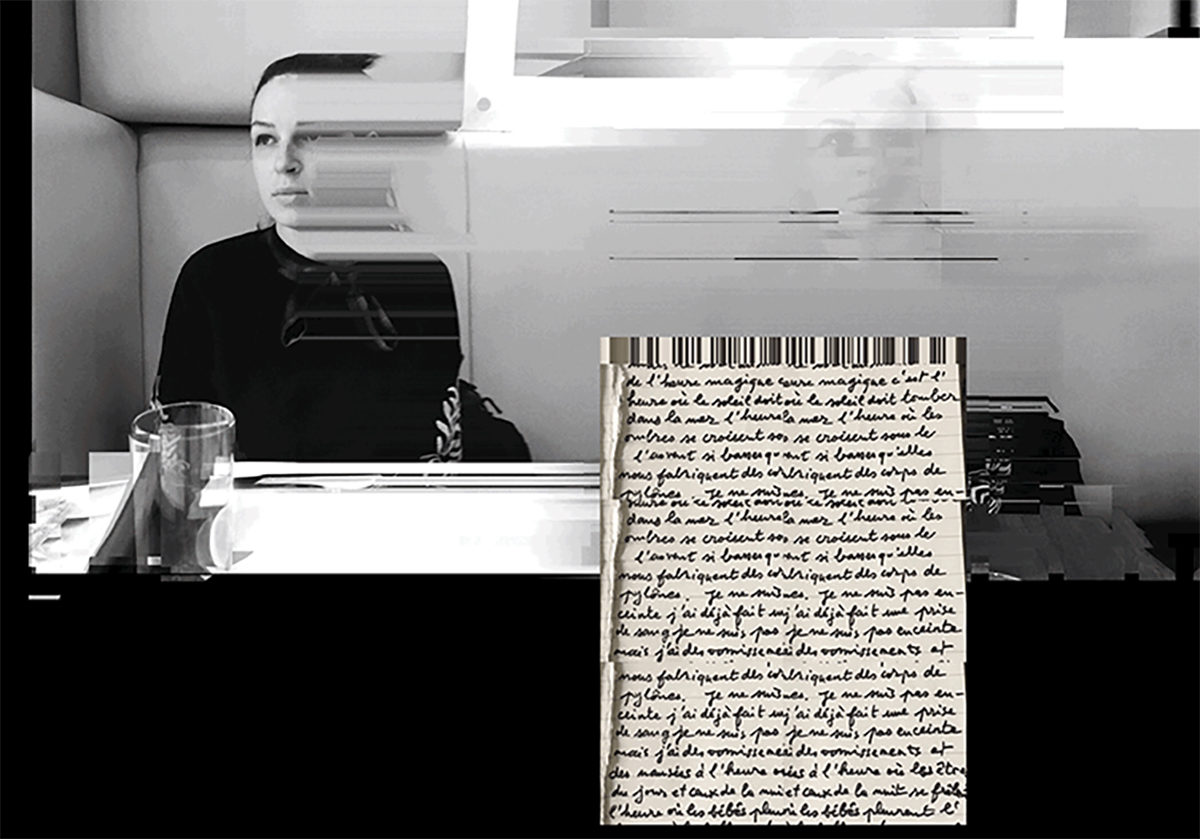 de l'heure magique eure magique c'est l'
heure où le soleil doit où le soleil doit tomber
dans la mer l'heure la mer l'heure où les
ombres se croisent sos se croisent sous le
l'avant si basses qu'elles
nous fabriquent des corps de
pylônes. Je ne suis pas en-
dans la mer l'heure la mer l'heure où les
ombres se croisent sos se croisent sous le
l'avant si basses qu'elles
nous fabriquent des corps de
pylônes. Je ne suis pas en-
ceinte j'ai déjà fait un j'ai déjà fait une prise
de sang je ne suis pas je ne suis pas enceinte
mais j'ai des vomissements et
nous fabriquent des corps de
pylônes. Je ne suis pas en-
ceinte j'ai déjà fait un j'ai déjà fait une prise
de sang je ne suis pas je ne suis pas enceinte
mais j'ai des vomissements et
des nausées à l'heure à l'heure où les êtres
du jour et ceux de la nuit et ceux de la nuit se
l'heure où les bébés pleurent les bébés pleurent l'